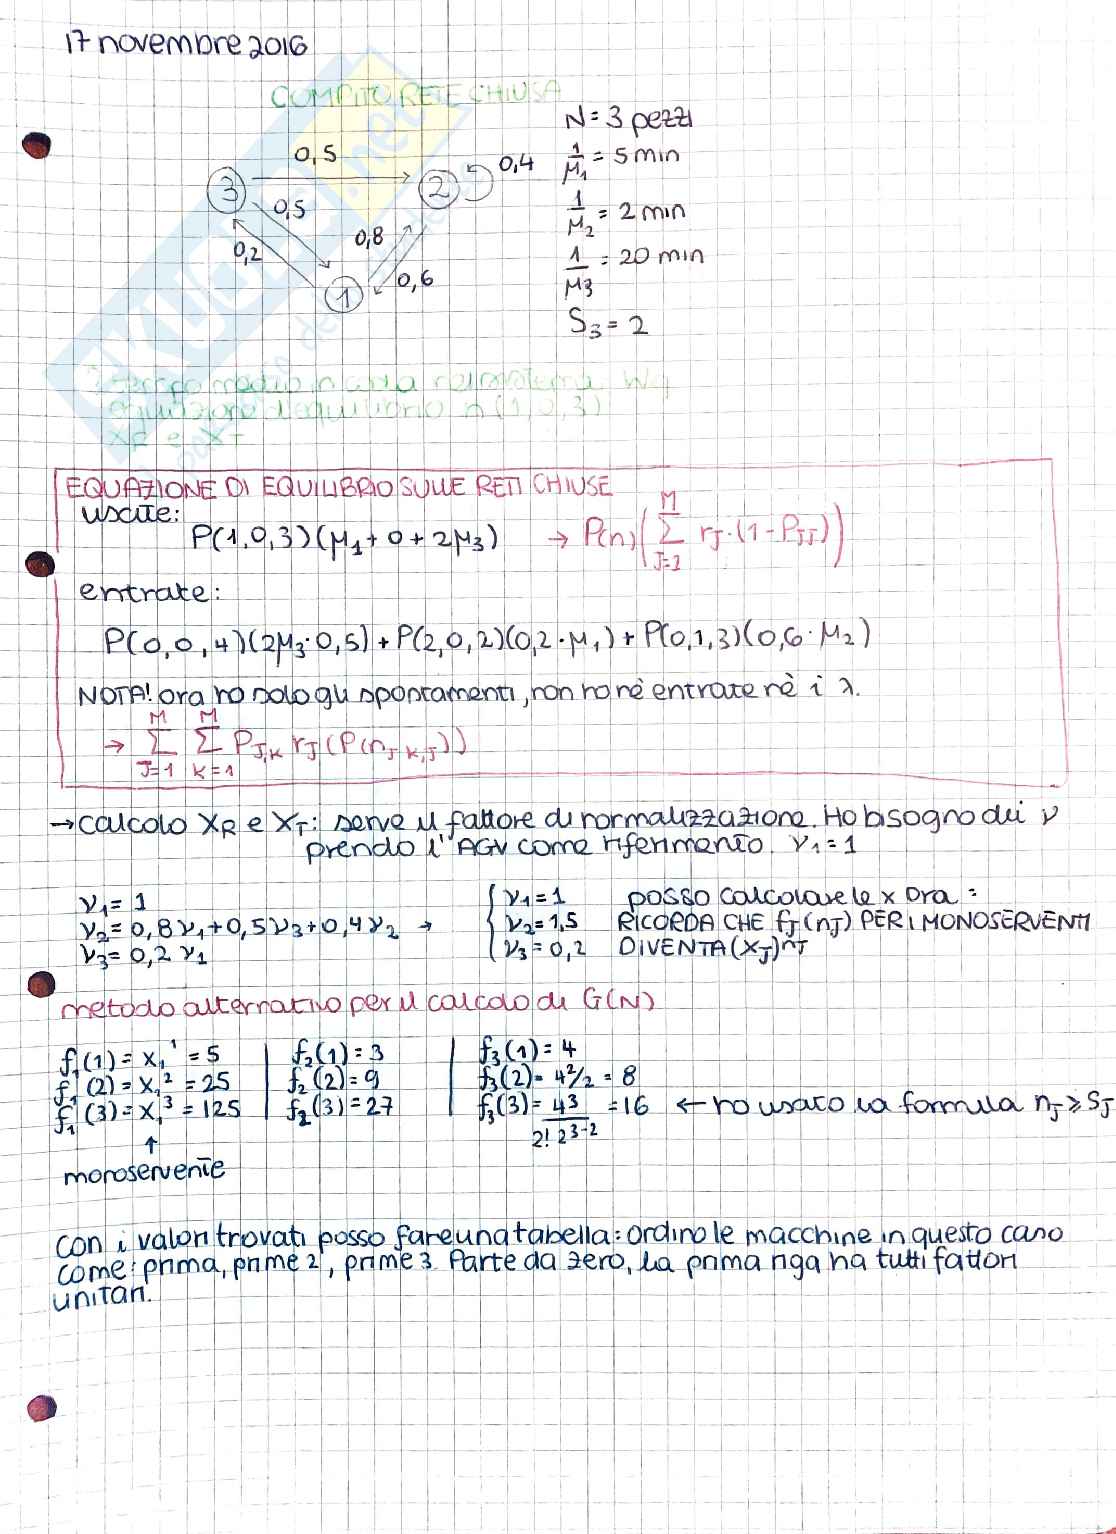 17 novembre 2016
COMPITO RETE CHIUSA
N = 3 pezzi
0,5
0,4
1/μ1 = 5 min
3
2
0,5
1/μ2 = 2 min
0,8
0,2
1/μ3 = 20 min
0,6
1
S3 = 2
tempo medio in coda nel sistema Wq
equazione di equilibrio n(1,0,3)
XR e XT
EQUAZIONE DI EQUILIBRIO SULLE RETI CHIUSE
uscite:
P(1,0,3)(μ1+0+2μ3) → P(n)(∑_{J=1}^{M} rJ·(1-PJJ))
entrate:
P(0,0,4)(2μ3·0,5)+P(2,0,2)(0,2·μ1)+P(0,1,3)(0,6·μ2)
NOTA! ora ho solo gli spostamenti, non ho nè entrate nè i λ.
→ ∑_{J=1}^{M} ∑_{K=1}^{M} PJ,K rJ(P(nJ K,J))
→ calcolo XR e XT: serve il fattore di normalizzazione. Ho bisogno dei ν
prendo l'AGV come riferimento. ν1=1
ν1=1
ν2=0,8ν1+0,5ν3+0,4ν2 →
ν3=0,2 ν1
{ ν1=1
ν2=1,5
ν3=0,2
posso calcolare le x ora:
RICORDA CHE fJ(nJ) PER I MONOSERVENTI
DIVENTA (XJ)^nJ
metodo alternativo per il calcolo di G(N)
f1(1)=X1^1=5
f1(2)=X1^2=25
f1(3)=X1^3=125
↑
monoservente
f2(1)=3
f2(2)=9
f2(3)=27
f3(1)=4
f3(2)=4^2/2=8
f3(3)=4^3/(2! 2^{3-2})=16 ← ho usato la formula nJ⩾SJ
con i valori trovati posso fare una tabella: ordino le macchine in questo caso
come: prima, prime 2, prime 3. Parte da zero, la prima riga ha tutti fattori
unitari.